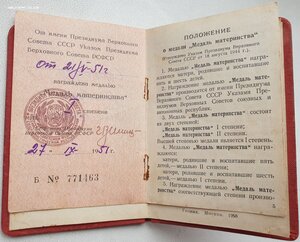 От имени Президиума Верховного
Совета СССР Указом Президиума
Верховного Совета РСФСР
От 21/IX-51г.
награждено медалью
„Медаль материнства“
I
степени
27 · IX 1951г.
Б № 771463
ПОЛОЖЕНИЕ
о медали „Медаль материнства“
1. Медалью „Медаль материнства“
награждаются матери, родившие и воспитавшие
пять и шесть детей.
2. Награждение медалью „Медаль мате-
ринства“ производится от имени Президиума
Верховного Совета СССР указами
Президиумов Верховных Советов союзных и
автономных республик.
3. Медаль „Медаль материнства“ состоит
из двух степеней:
„Медаль материнства“ I степени;
„Медаль материнства“ II степени.
Высшей степенью медали является I степень.
4. Медалью „Медаль материнства“
награждаются:
матери, родившие и воспитавшие пять
детей, — медалью II степени;
матери, родившие и воспитавшие шесть
детей, — медалью I степени.
5. Награждение медалью „Медаль мате-
ринства“ соответствующей степени произво-
5